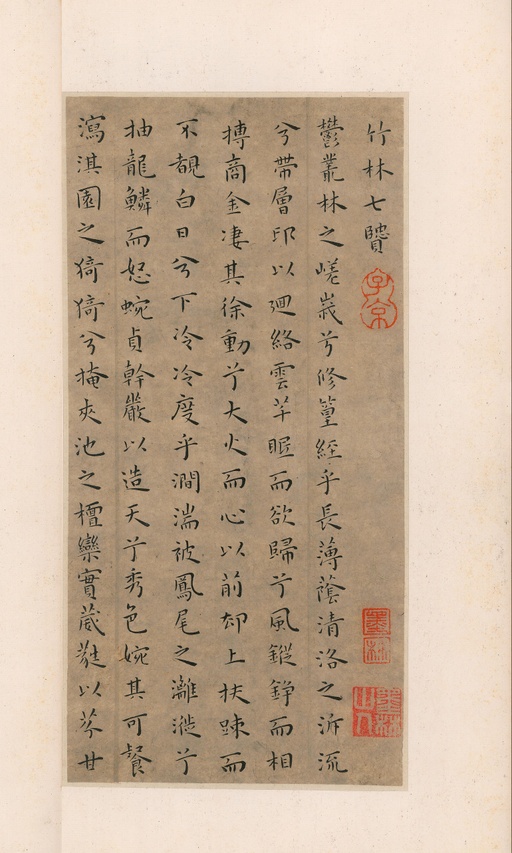 竹林七賢
鬱叢林之嵯峩兮修篁經乎長薄蔭清洛之泝流
兮帶層邱以迴絡雲芊眠而欲歸兮風鏦錚而相
摶商金淒其徐動兮大火而心以前却上扶踈而
不覩白日兮下冷冷度乎澗湍被鳳尾之灕漇兮
抽龍鱗而怒蜿貞幹嚴以造天兮秀色婉其可餐
瀉淇園之猗猗兮掩夾池之檀欒實葳蕤以芬甘
子京
墨林